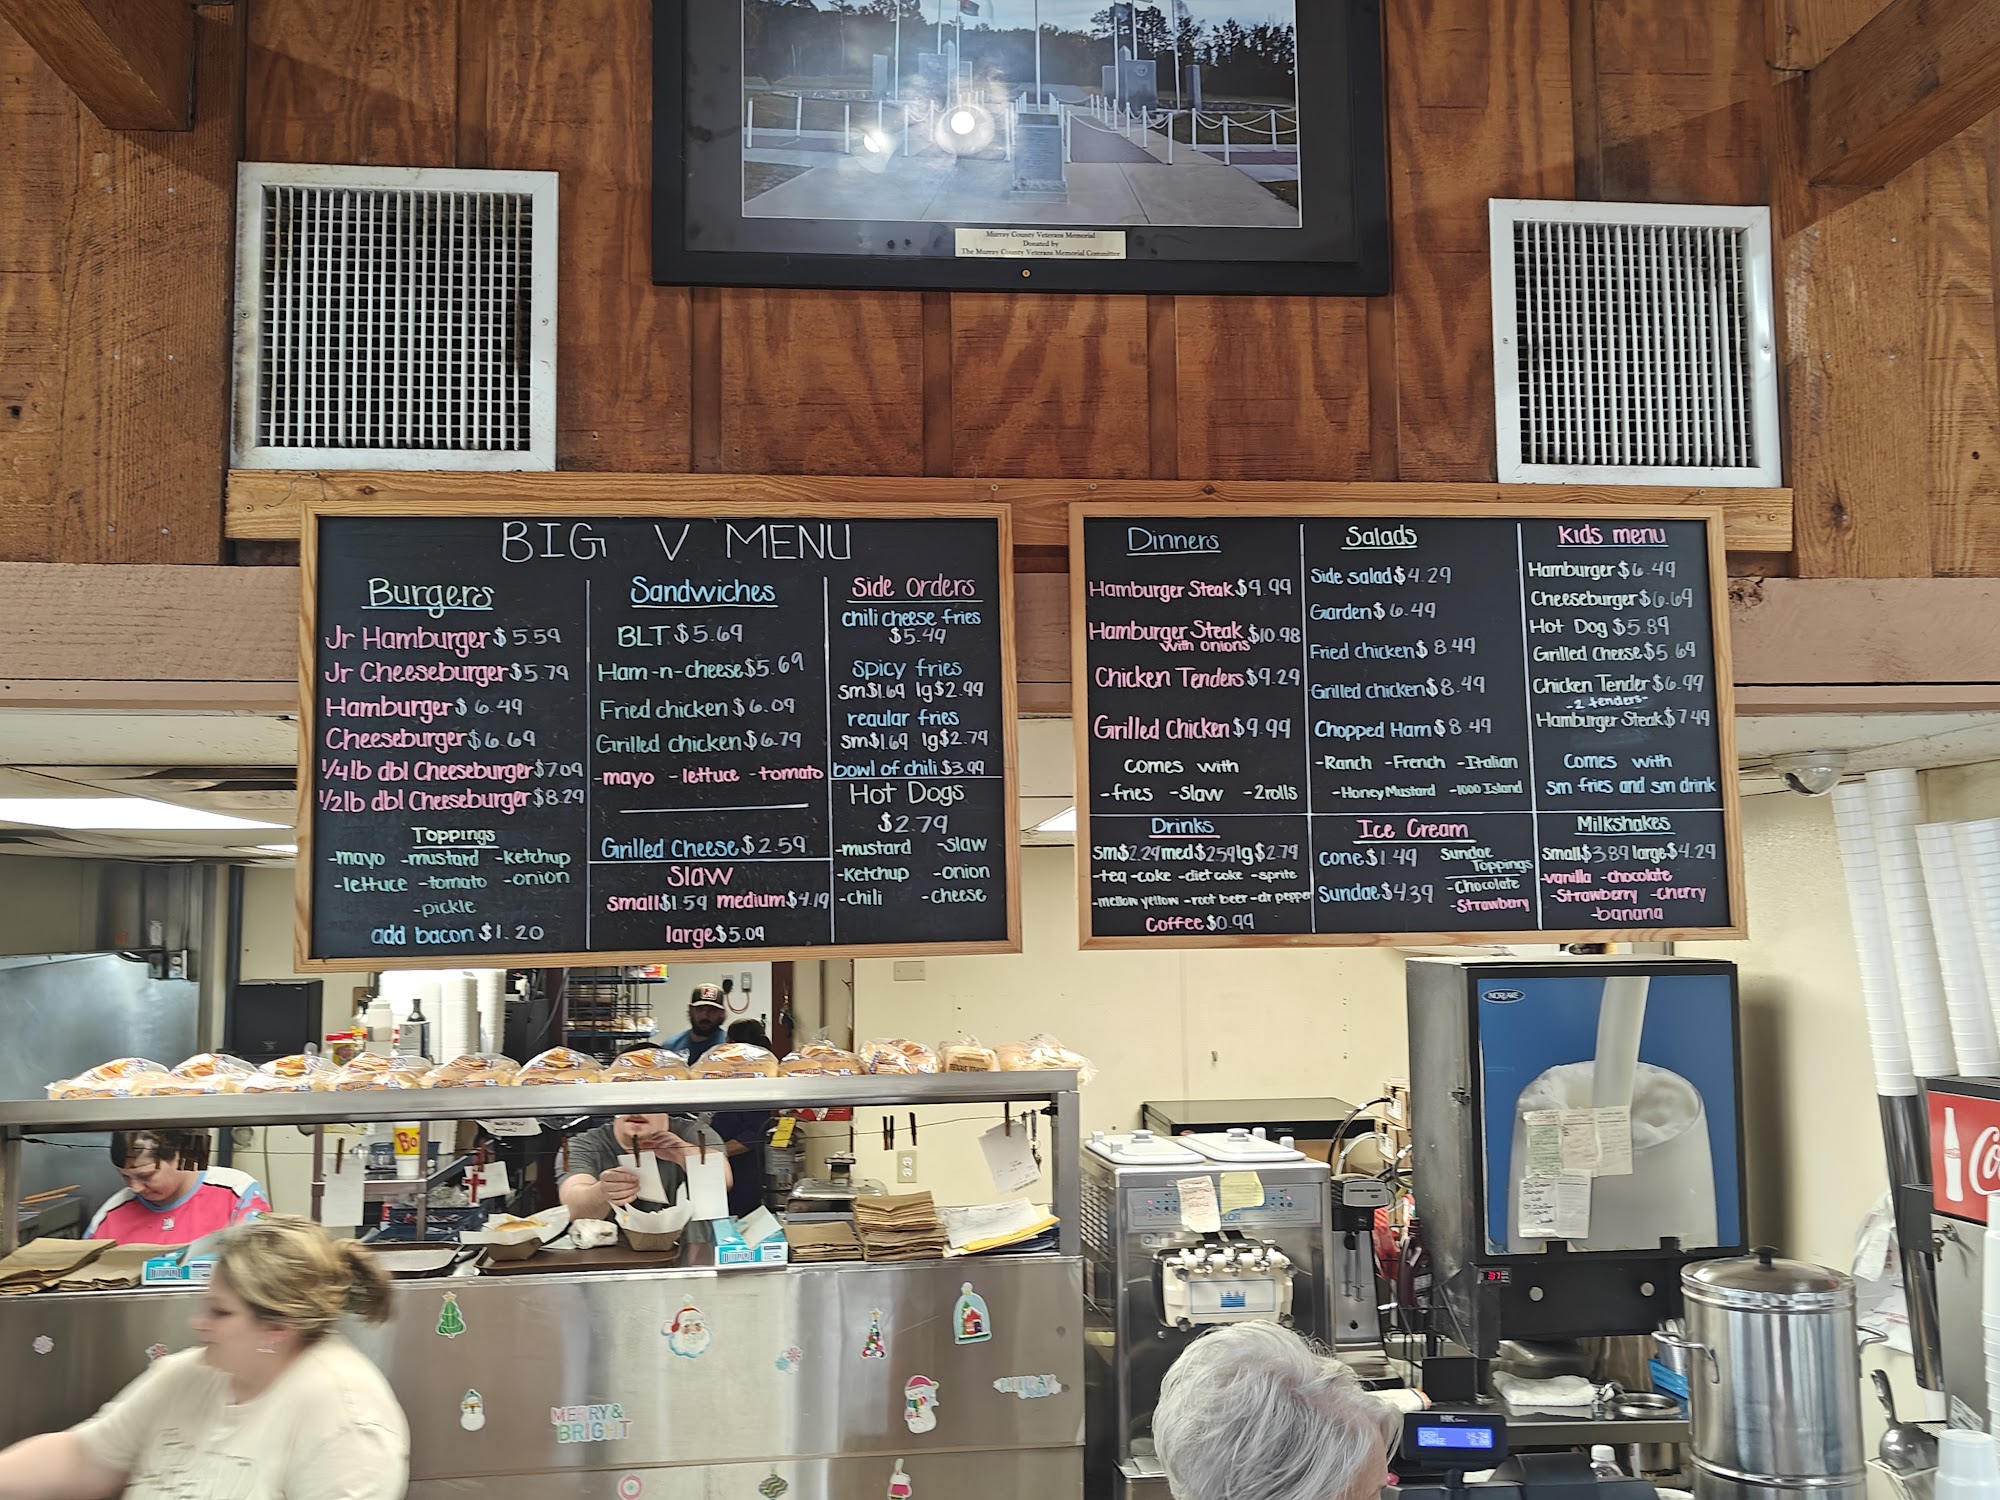 Murray County Veterans Memorial
Donated by
The Murray County Veterans Memorial Committee
BIG V MENU
Burgers
Jr Hamburger $5.59
Jr Cheeseburger $5.79
Hamburger $6.49
Cheeseburger $6.69
1/4lb dbl Cheeseburger $7.09
1/2lb dbl Cheeseburger $8.29
Toppings
-mayo -mustard -ketchup
-lettuce -tomato -onion
-pickle
add bacon $1.20
Sandwiches
BLT $5.69
Ham-n-cheese $5.69
Fried chicken $6.09
Grilled chicken $6.79
-mayo -lettuce -tomato
Grilled Cheese $2.59
Slaw
small $1.59 medium $4.19
large $5.09
Side Orders
chili cheese fries
$5.49
spicy fries
sm $1.69 lg $2.99
regular fries
sm $1.69 lg $2.79
bowl of chili $3.99
Hot Dogs
$2.79
-mustard -slaw
-ketchup -onion
-chili -cheese
Dinners
Hamburger Steak $9.99
Hamburger Steak $10.98
with onions
Chicken Tenders $9.29
Grilled Chicken $9.99
comes with
-fries -slaw -2rolls
Salads
Side salad $4.29
Garden $6.49
Fried chicken $8.49
Grilled chicken $8.49
Chopped Ham $8.49
-Ranch -French -Italian
-Honey Mustard -1000 Island
Kids menu
Hamburger $6.49
Cheeseburger $6.69
Hot Dog $5.89
Grilled Cheese $5.69
Chicken Tender $6.99
-2 tenders-
Hamburger Steak $7.49
comes with
sm fries and sm drink
Drinks
sm $2.29 med $2.59 lg $2.79
-tea -coke -diet coke -sprite
-mellow yellow -root beer -dr pepper
Coffee $0.99
Ice Cream
cone $1.49
Sundae $4.39
Sundae
Toppings
-Chocolate
-Strawberry
Milkshakes
small $3.89 large $4.29
-vanilla -chocolate
-Strawberry -cherry
-banana
NORLAKE
Bo
TAYLOR
MERRY &
BRIGHT
Co